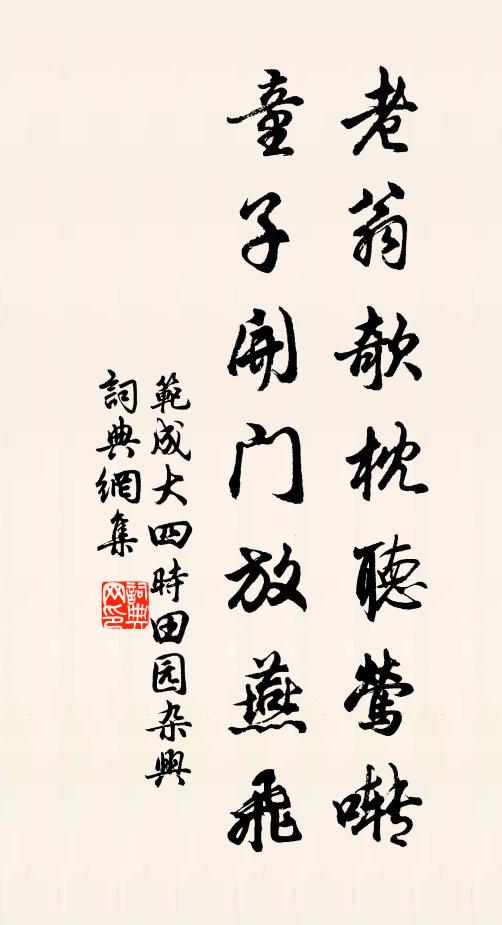 老翁欹枕聽莺囀
童子開门放燕飛
範成大四時田园杂興
詞典網集
詞典网印